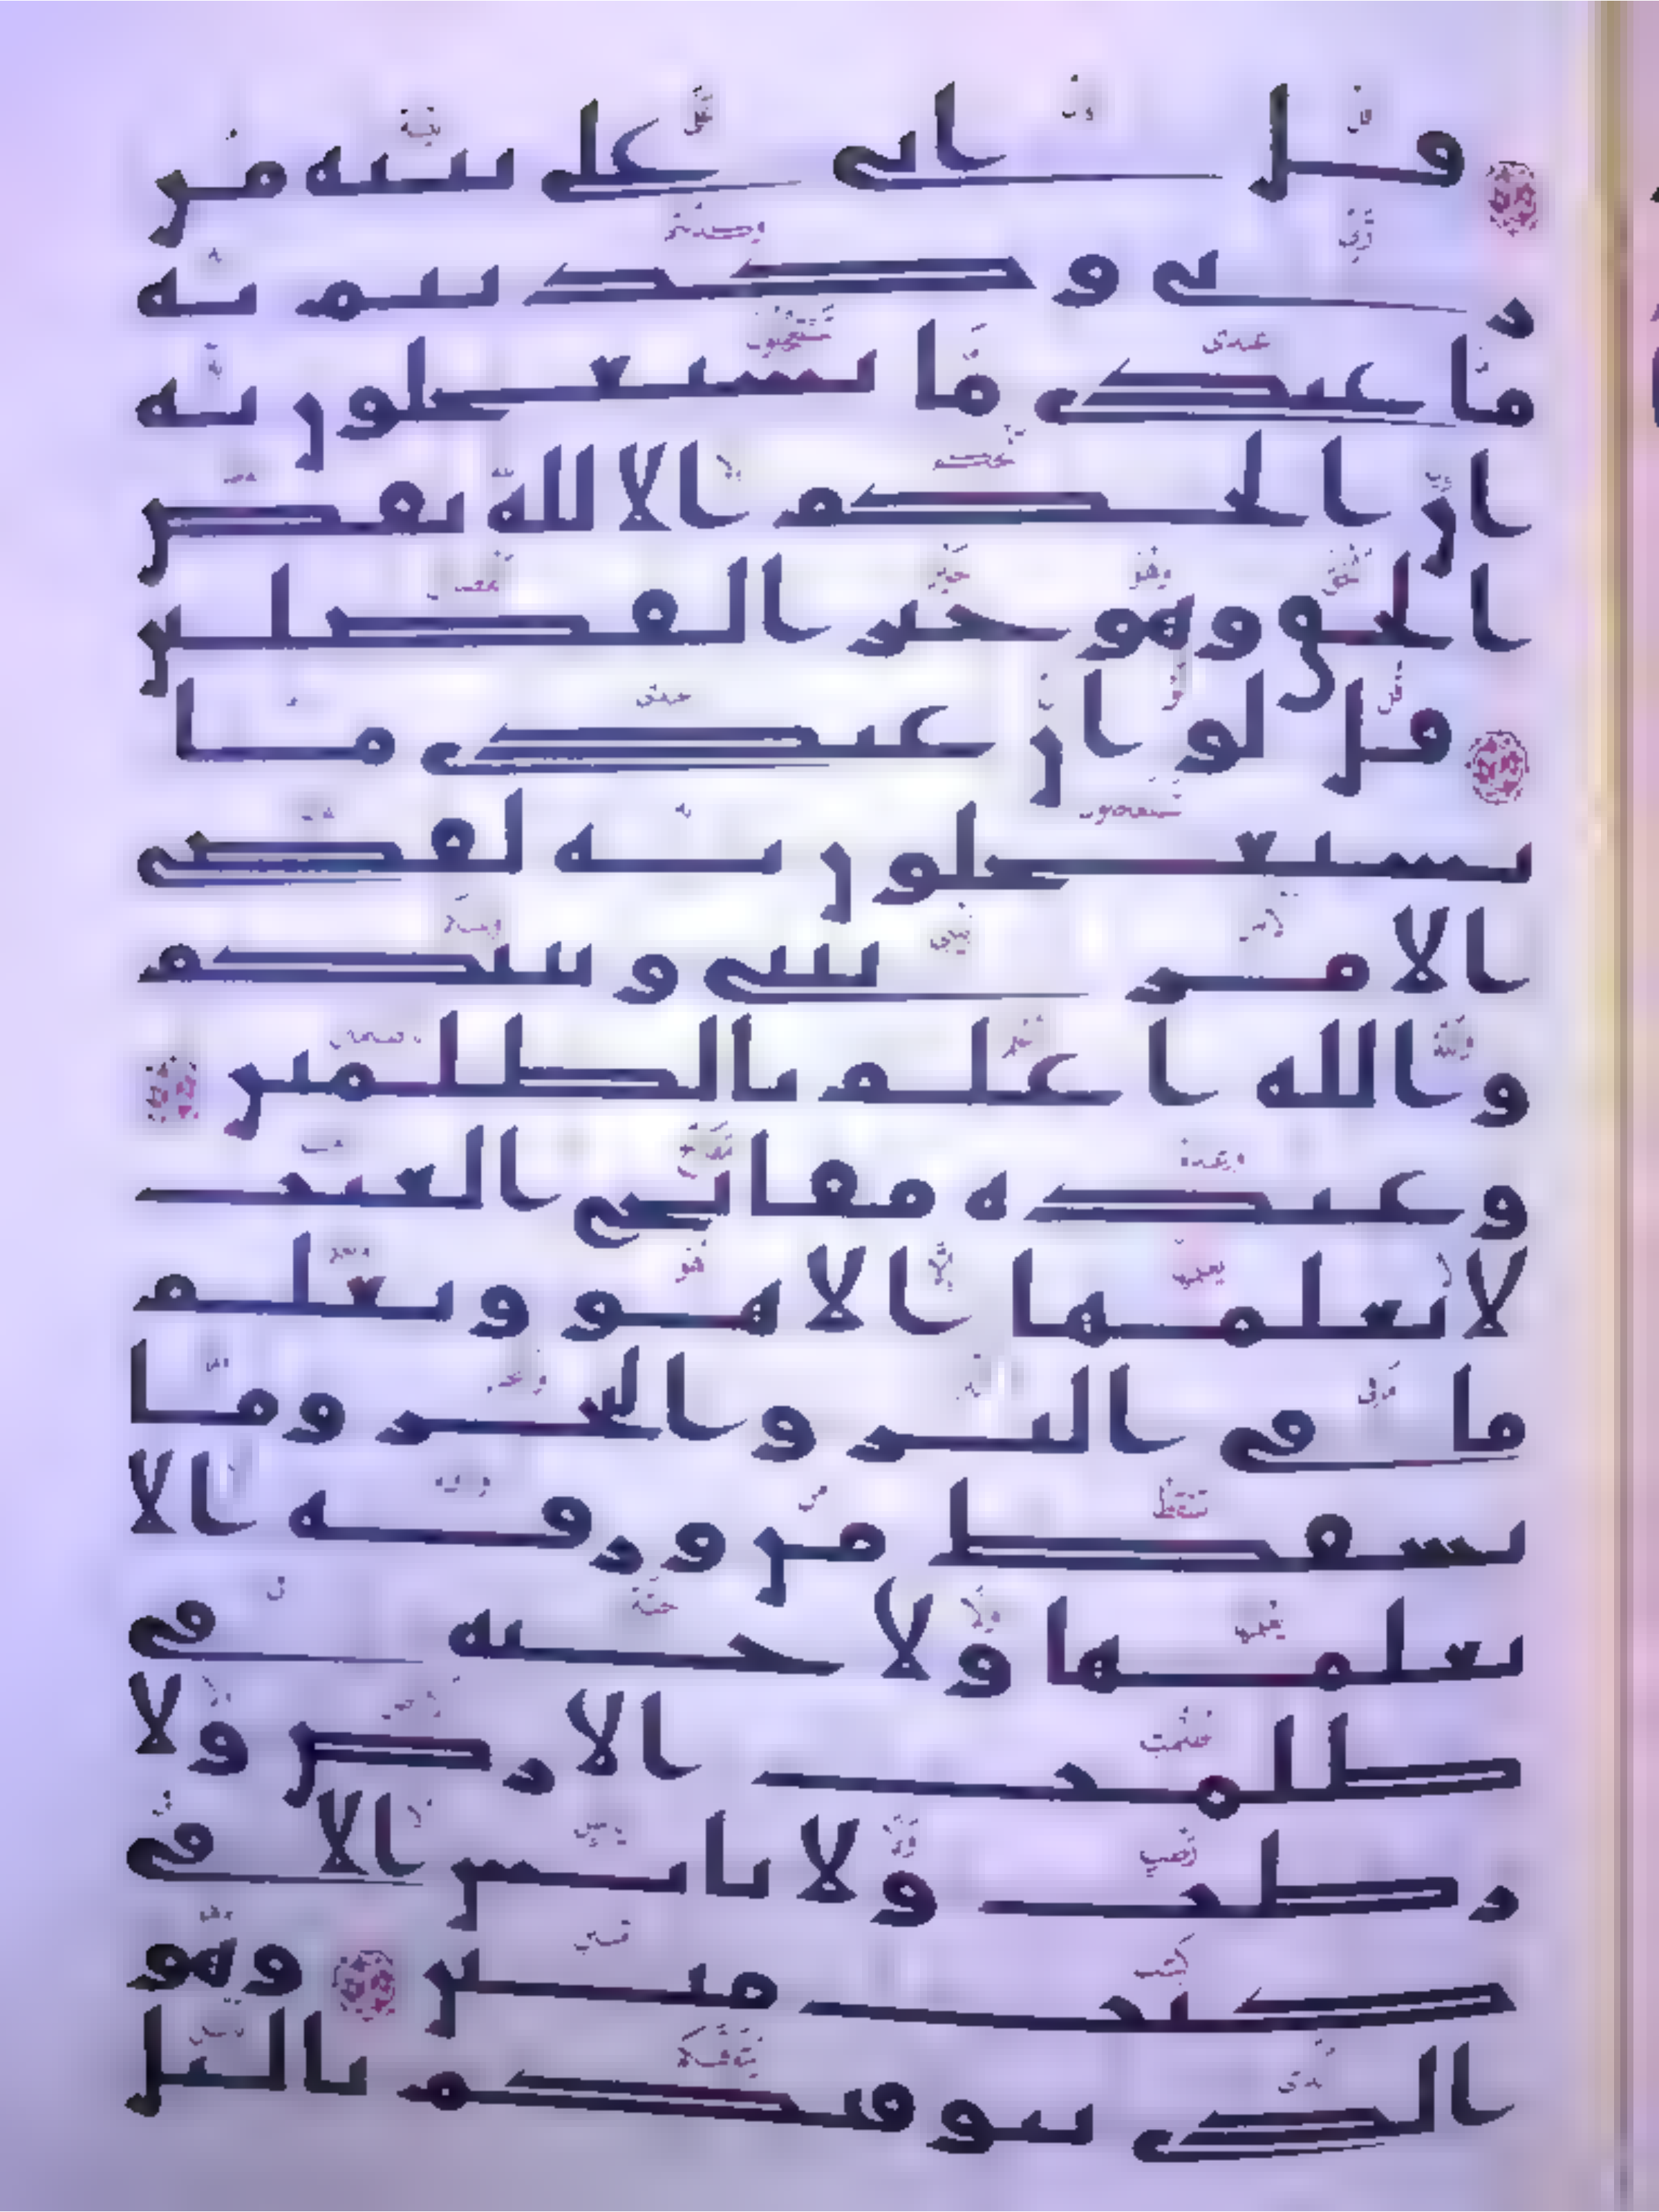 قل انى على بينه من
ربى وكذبتم به
ما عندى ما تستعجلون به
ان الحكم الا لله يقص
الحق وهو خير الفصلين
قل لو ان عندى ما
تستعجلون به لقضى
الامر بينى وبينكم
والله اعلم بالظلمين
وعنده مفاتح الغيب
لا يعلمها الا هو ويعلم
ما فى البر والبحر وما
تسقط من ورقه الا
يعلمها ولا حبه فى
ظلمت الارض ولا
رطب ولا يابس الا فى
كتب مبين وهو
الذى يتوفيكم باليل